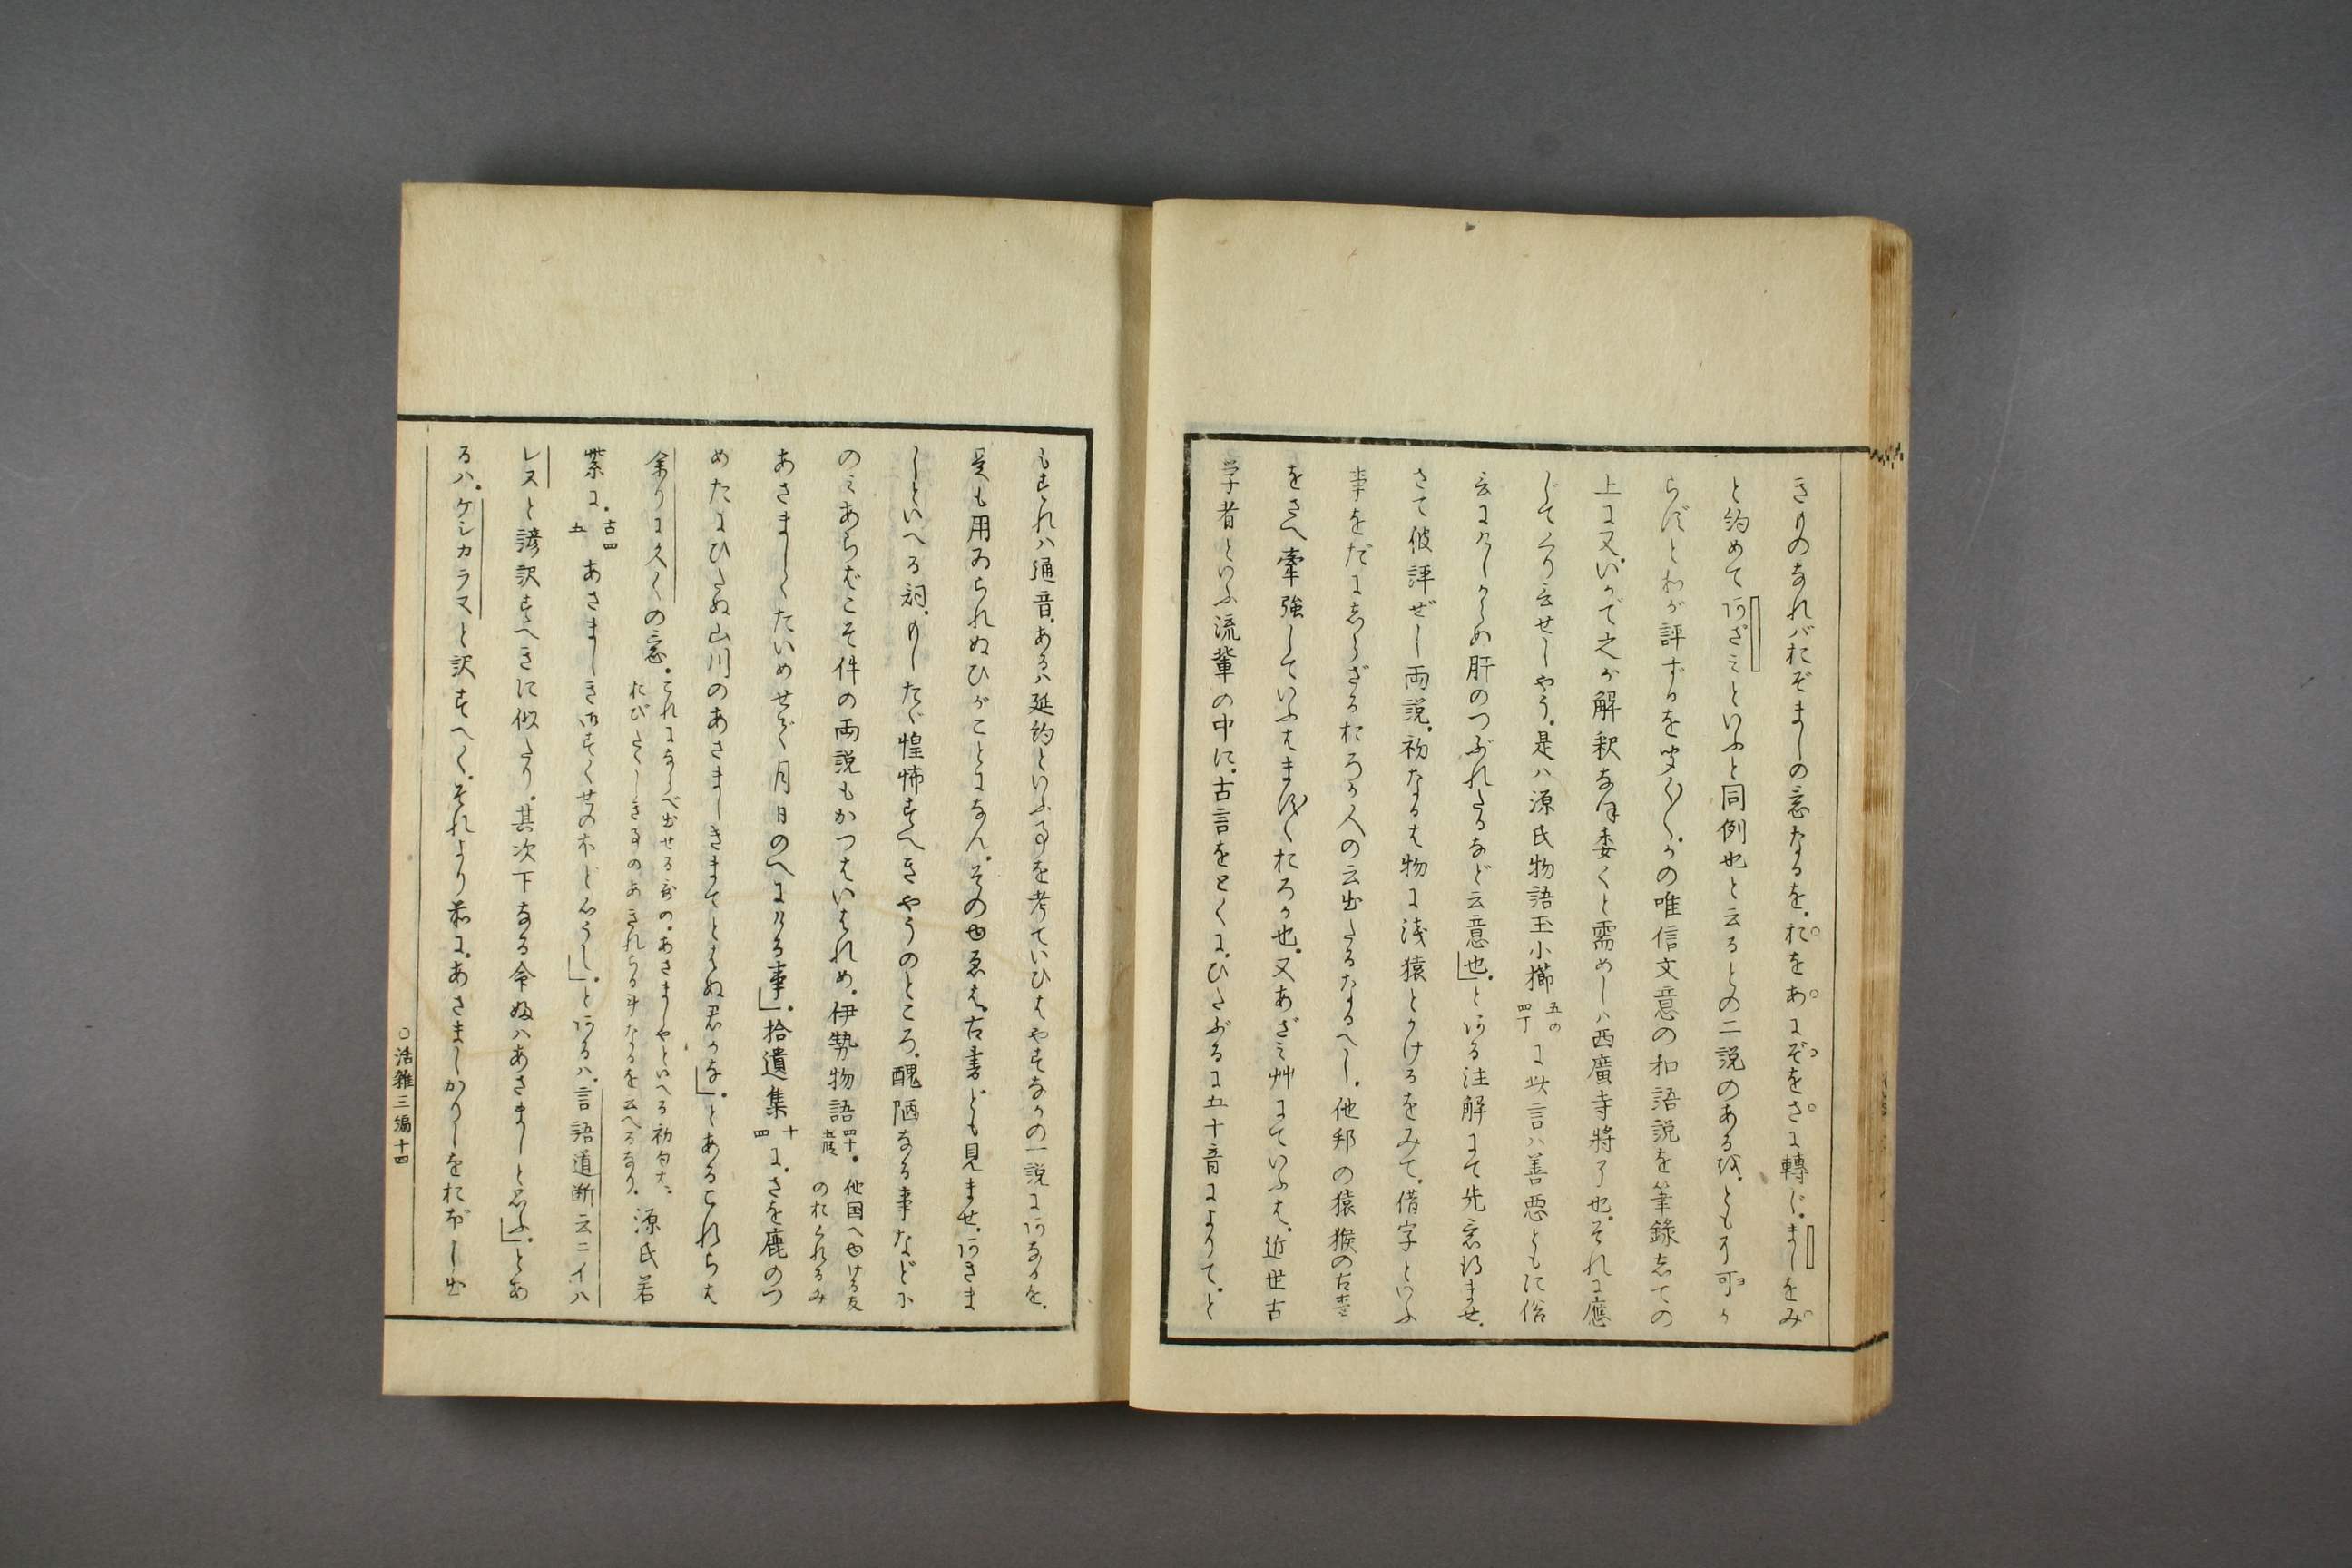 きものなれバおぞましの意なるを。おをあにぞをさに轉じ。ましをみ
と約めてアザミといふと同例也と云るとの二説のあるを。とも可
らずとわが評ずるを聞て。かの唯信文意の和語説を筆錄しての
上に又。いかで之が解釈なほ委くと需めしハ西廣寺將了也。それに應
じてくり言せしやう。是ハ源氏物語玉小櫛五の四丁に此言ハ善悪ともに俗
云にけしからぬ肝のつぶれたるなど云意也」。とある注解にて先意得ませ。
さて彼評ぜし両説。初なるは物に浅猿とかけるをみて。借字といふ
事をだにしらざるおろか人の云出たるなるへし。他邦の猿猴の古事
をさへ牽強していふはまた〳〵おろか也。又あざみ艸にていふは。近世古
学者といふ流輩の中に。古言をとくに。ひたぶるに五十音によりて。と
もすれハ通音。あるハ延約といふ事を考ていひはやすなかの一説にあなるを。
是も用ゐられぬひがことになん。その由ゑは。古書ども見ませ。あさま
しといへる詞。もしたゞ惶怖すへきやうのところ。醜陋なる事などに
のみあらばこそ件の両説もかつはいはれめ。伊勢物語四十六段。他国へゆける友のおくれるみ
あさましくたいめせで月日のへにける事」。拾遺集十四に。さを鹿のつ
めたにひたぬ山川のあさましきまてとはぬ君かな」。とあるこれらは
余りに久くの意。これにならべ出せる歌の。あさましやといへる初句は。おびたゝしき事のあきれらる斗なるを云へるなり。源氏若
紫に。古四五あさましき御すくせのほど心うし」。とあるハ。言語道断云ニイハ
レヌと諺訳すへきに似たり。其次下なる命婦ハあさましと思ふ」。とあ
るハ。ケシカラヌと訳すへく。それより前に。あさましかりしをおぼし出
〇活雜三編十四